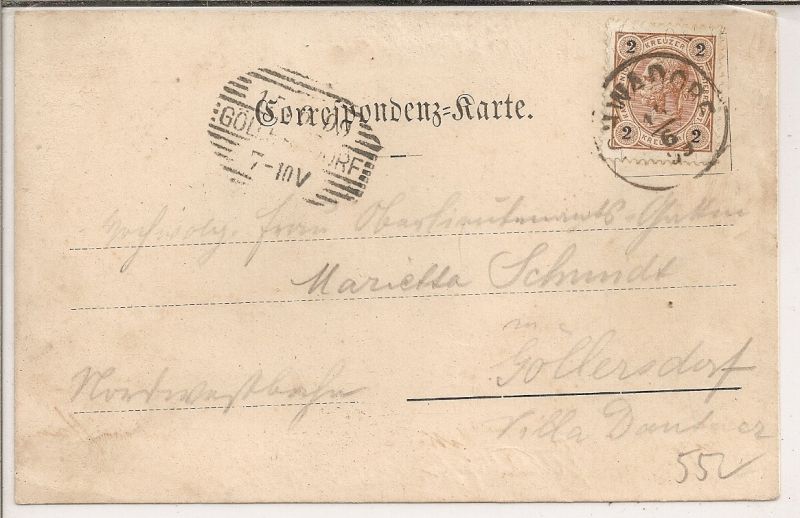 2 KREUZER 2
2 KREUZER 2
GÖLLERSDORF
7-10V
Correspondenz-Karte.
Hochwolg. Frau Oberlieutenants-Gattin
Marietta Schmidt
in
Göllersdorf
Nordwestbahn
Villa
55